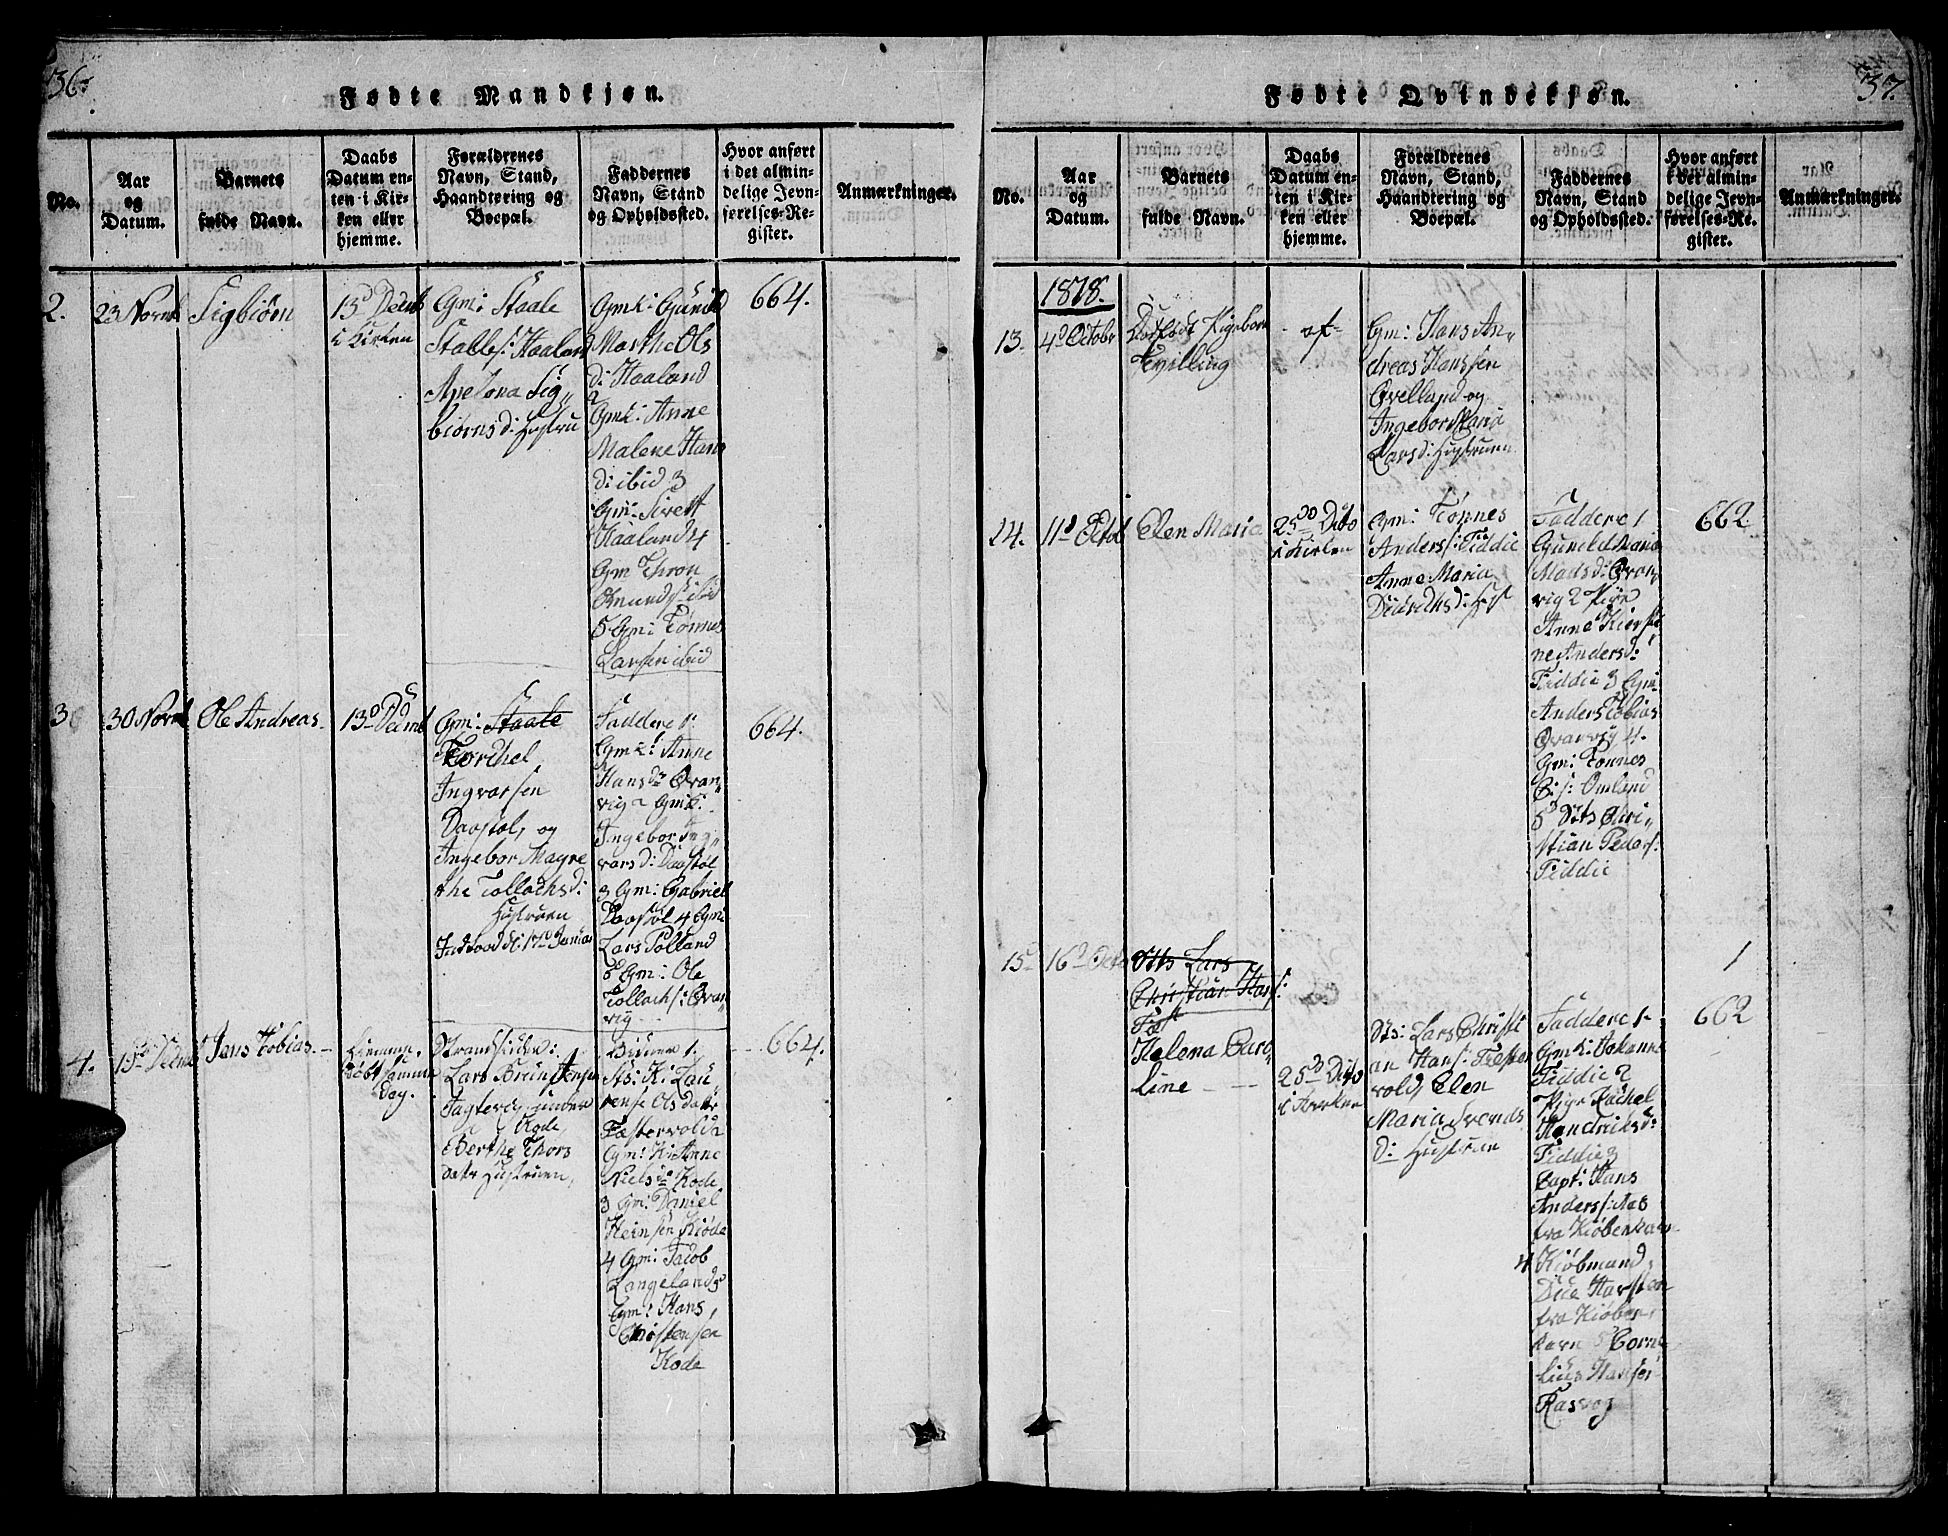 36.
Fødte Mandkjøn.
No.
Aar
og
Datum.
Barnets
fulde Navn.
Daabs
Datum en-
ten i Kir-
ken eller
hjemme.
Forældrenes
Navn, Stand,
Haandtering og
Boepæl.
Faddernes
Navn, Stand
og Opholdssted.
Hvor anført
i det almin-
delige Jevn-
førelses-Re-
gister.
Anmærkninger.
2.
23 Novb
Sigbiørn
13d Decmb
i Kirken
Gm: Staale
Stalles: Haaland
Sig„
biørnsd: Hustru
Gmk: Gunild
Marthe Ols
d: Haaland
2
Gmk: Anne
Malene Hans
d: ibid 3
Gm: Sivert
Haaland 4
Gm Thron
Omunds: ibid
5 Gm: Tønnes
Larsen ibid
664.
3
30 Novb
Ole Andreas
13d Decmb
Gm: Staale
Torchel
Ingvarsen
Daastøl, og
Ingebor Magre
the Tollachsd:
Hustruen
17d Januar
Faddere 1.
Gmk: Anne
Hansdr Qvar„
vig 2 Gmk:
Ingebor Ing„
varsd: Daastøl
3 Gm: Gabriel
Daastøl 4 Gm:
Lars Polland
5 Gm: Ole
Tollachs: Qvar„
vig
664.
4.
13d Decmb
Jens Tobias
hjemme
døbt samme
Dag.
Strandsidder:
Lars Brun Jensen
under
Kode,
Berthe Thors
datr Hustruen,
1.
Sts: K: Lau„
rense Ols datr
Fæstervold 2
Gm: K: Anne
Nielsdr Kode
3 Gm: Daniel
Heinsen Kiøde
4 Gm: Jacob
Langeland 5
Gm: Hans
Christensen
Kode
664.
37.
Fødte Qvindekjøn.
No.
Aar
og
Datum.
Barnets
fulde Navn.
Daabs
Datum en-
ten i Kir-
ken eller
hjemme.
Forældrenes
Navn, Stand,
Haandtering og
Boepæl.
Faddernes
Navn, Stand
og Opholdssted.
Hvor anført
i det almin-
delige Jevn-
førelses-Re-
gister.
Anmærkninger.
1818.
13.
4d Octobr
Dødfødt Pigebarn
Tvilling
af
Gm: Hans An„
dreas Hanssen
Qvelland og
Ingebor Maria
Larsd: Hustruen
14.
11d Octob
Elen Maria
25d Dito
i Kirken
Gm: Tønnes
Anders: Tiddie
Anne Maria
Didrichsd: Hust
Faddere 1
Gunild Maria
Madsd: Qvar„
vig 2 Pige
Anne Kiersti
ne Andersd:
Tiddie 3 Gm:
Anders Tobias
Qvarvig 4.
Gm: Tønnes
Omland
5 Sts Chri„
stian Peders:
Tiddie
662.
15
16d Octo
Sts Lars
Christian Hans:
Helena Caro„
line
25d Dito
i Kirken
Sts: Lars Christi
an Hans: Fæster
vold, Elen
Maria Svends
d: Hustrue
Faddere 1
Gmk: Johanne
Tiddie 2
Pige Rachel
Hendriksd:
Tiddie 3
Capt: Hans
Anders: Aas
fra Kiøbenhavn
4 Kiøbmand
fra Kiøben„
havn 5 Corne
lius Hansen
Rasvog
1
662